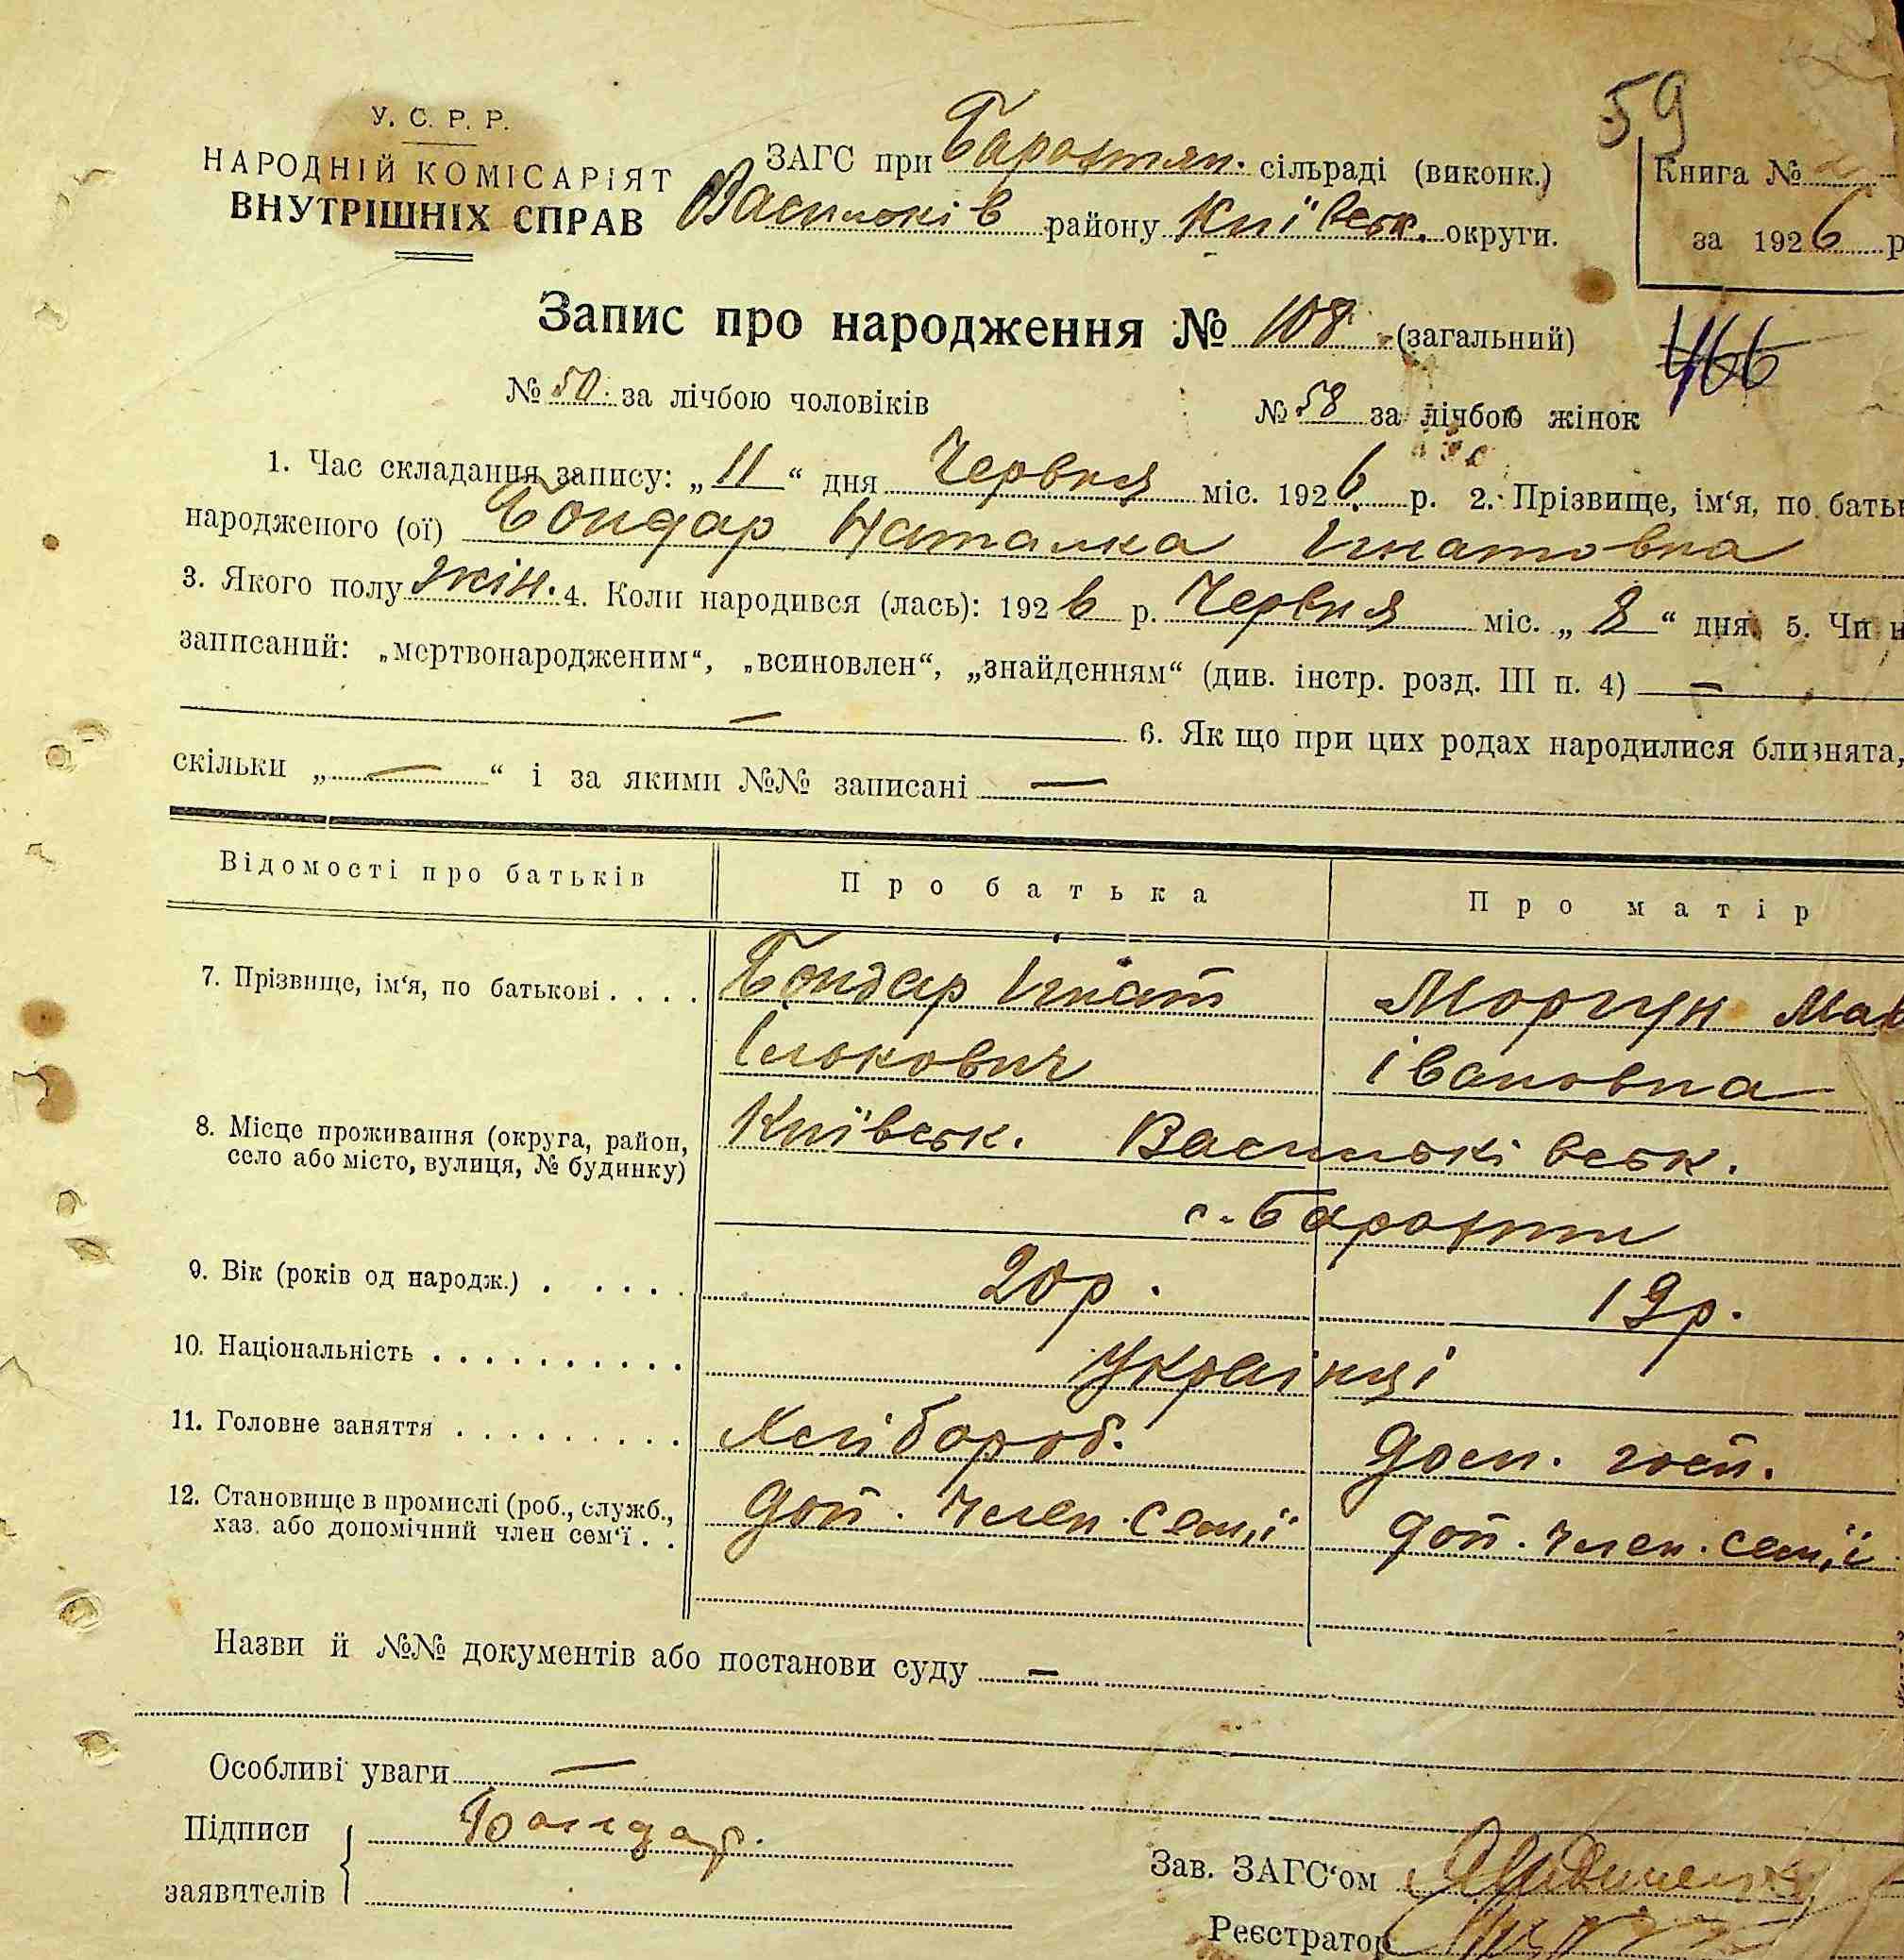 59
У. С. Р. Р.
НАРОДНІЙ КОМІСАРІЯТ
ВНУТРІШНІХ СПРАВ
ЗАГС при Барахтян. сільраді (виконк.)
Васильків району Київськ. округи.
Книга № 2
за 1926 р
Запис про народження № 108 (загальний)
466
№ 50 за лічбою чоловіків № 58 за лічбою жінок
1. Час складання запису: „11“ дня Червня міс. 1926 р. 2. Прізвище, ім‘я, по батьк
народженого (ої) Бондар Наталка Ігнатовна
3. Якого полу жін. 4. Коли народився (лась): 1926 р. Червня міс. „8“ дня 5. Чи н
записаний: „мертвонародженим“, „всиновлен“, „знайденням“ (див. інстр. розд. III п. 4) —
— 6. Як що при цих родах народилися близнята,
скільки „—“ і за якими №№ записані —
Відомості про батьків Про батька Про матір
7. Прізвище, ім‘я, по батькові . . . . Бондар Ігнат Моргун
Ількович Івановна
8. Місце проживання (округа, район, Київськ. Васильківськ.
село або місто, вулиця, № будинку)
с. Барахти
9. Вік (років од народж.) . . . . . 20 р. 19 р.
10. Національність . . . . . . . . . . Українці
11. Головне заняття . . . . . . . . . Хлібороб. дом. госп.
12. Становище в промислі (роб., служб., доп. член. сем‘ї доп. член. сем‘ї
хаз. або допомічний член сем‘ї . .
Назви й №№ документів або постанови суду —
Особливі уваги —
Підписи Бондар.
заявителів
Зав. ЗАГС‘ом
Реєстратор